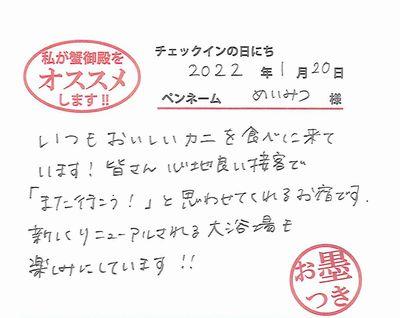 私が蟹御殿を
オススメ
します!!
チェックインの日にち
2022年1月20日
ペンネーム めいみつ 様
いつもおいしいカニを食べに来て
います!皆さん心地良い接客で
「また行こう!」と思わせてくれるお宿です.
新しくリニューアルされる大浴場も
楽しみにしています!!
お墨
つき